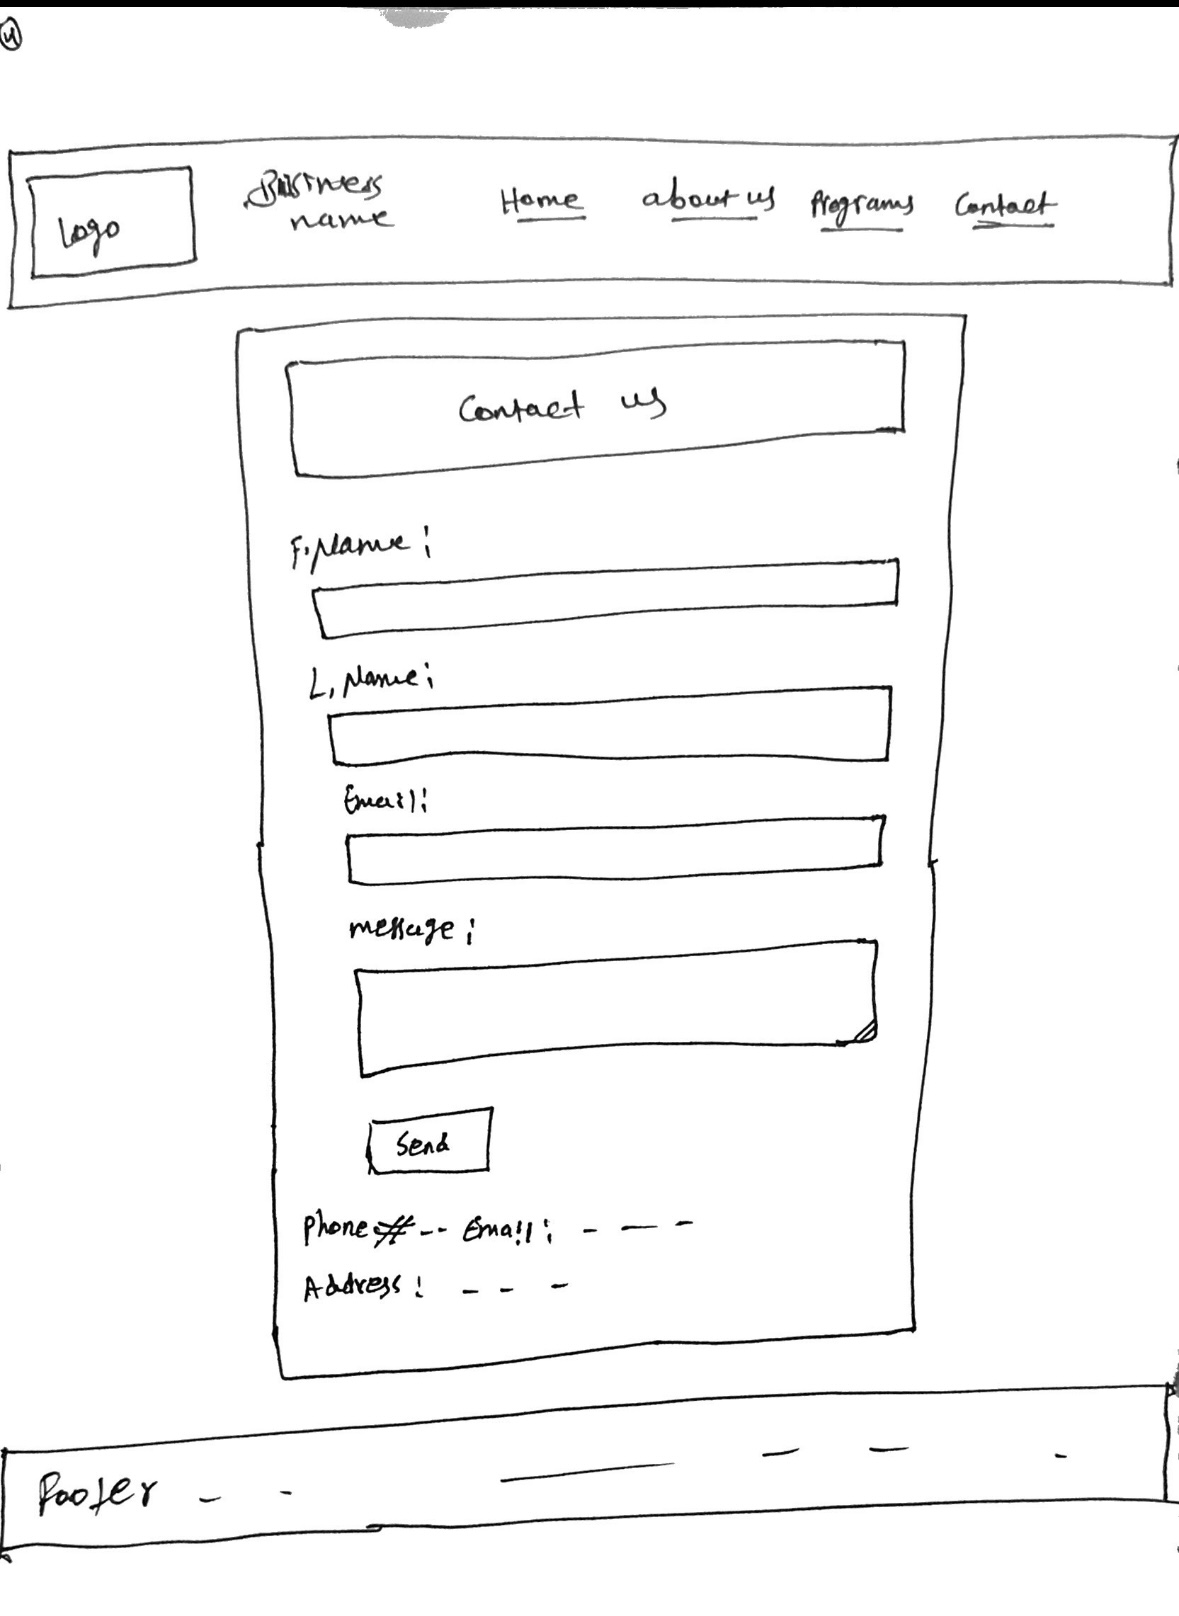 4
Logo
Business
name
Home about us Programs Contact
Contact us
F. Name:
L. Name:
Email:
message:
Send
Phone # -- Email: - — -
Address: - - -
Footer - - — - - -